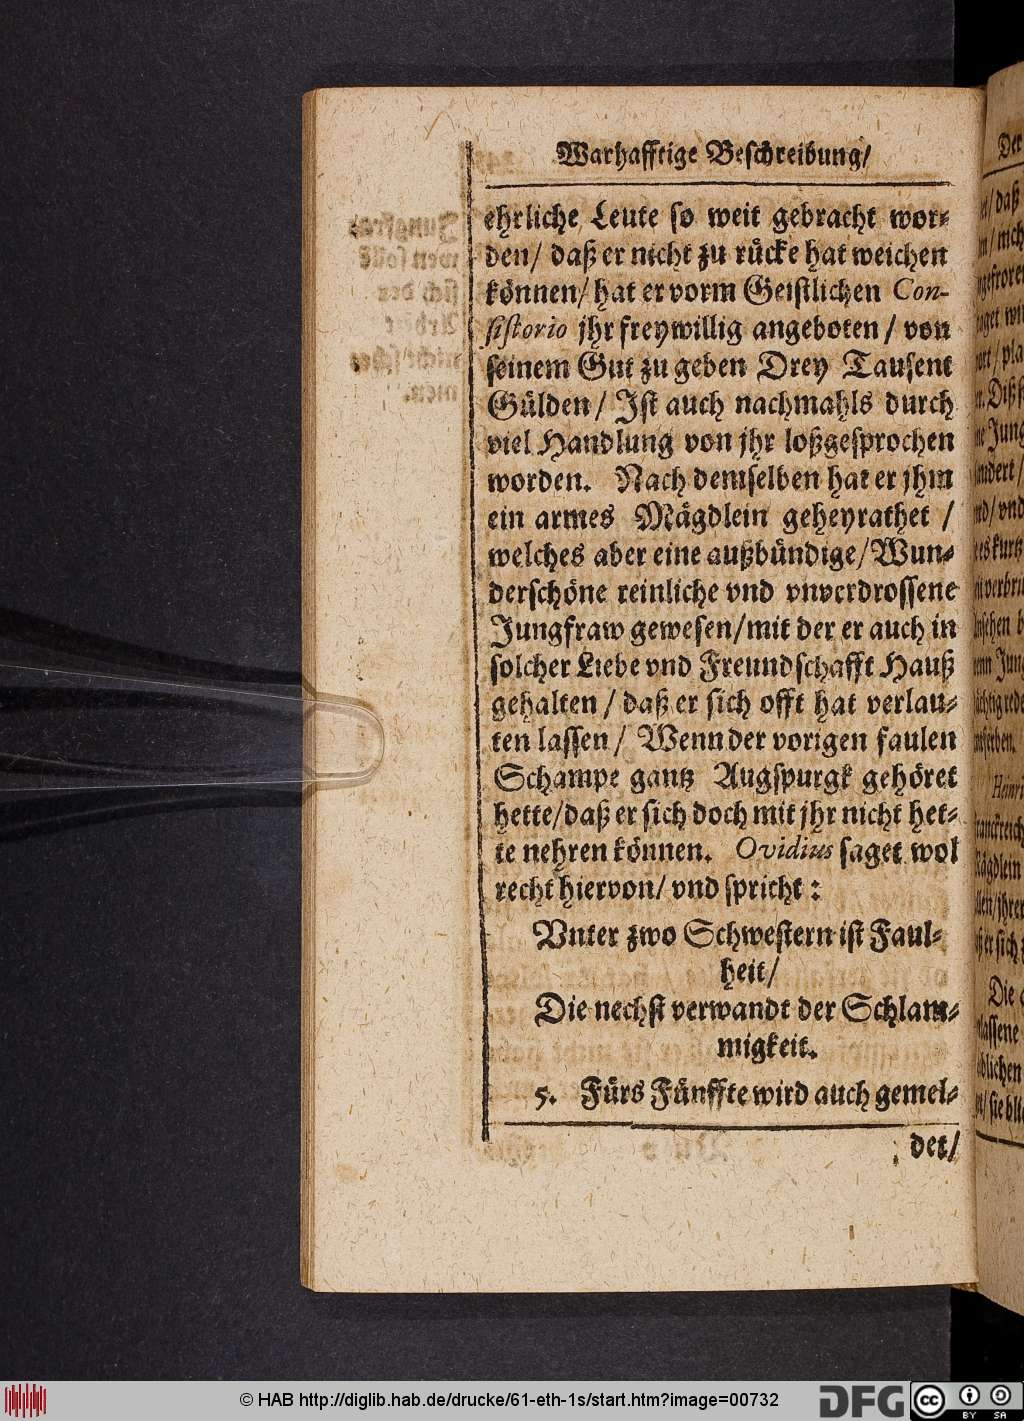 Warhafftige Beschreibung/
ehrliche Leute so weit gebracht wor-
den/ daß er nicht zu rücke hat weichen
können/ hat er vorm Geistlichen Con-
sistorio jhr freywillig angeboten / von
seinem Gut zu geben Drey Tausent
Gülden/ Ist auch nachmahls durch
viel Handlung von jhr loßgesprochen
worden. Nach demselben hat er jhm
ein armes Mägdlein geheyrathet /
welches aber eine außbündige/Wun-
derschöne reinliche vnd vnverdrossene
Jungfraw gewesen/mit der er auch in
solcher Liebe vnd Freundschafft Hauß
gehalten / daß er sich offt hat verlau-
ten lassen/ Wenn der vorigen faulen
Schampe gantz Augspurgk gehöret
hette/daß er sich doch mit jhr nicht het-
te nehren können. Ovidius saget wol
recht hiervon/ vnd spricht:
Vnter zwo Schwestern ist Faul-
heit/
Die nechst verwandt der Schlam-
migkeit.
5. Fürs Fünffte wird auch gemel-
det/
© HAB http://diglib.hab.de/drucke/61-eth-1s/start.htm?image=00732
DFG
cc BY SA